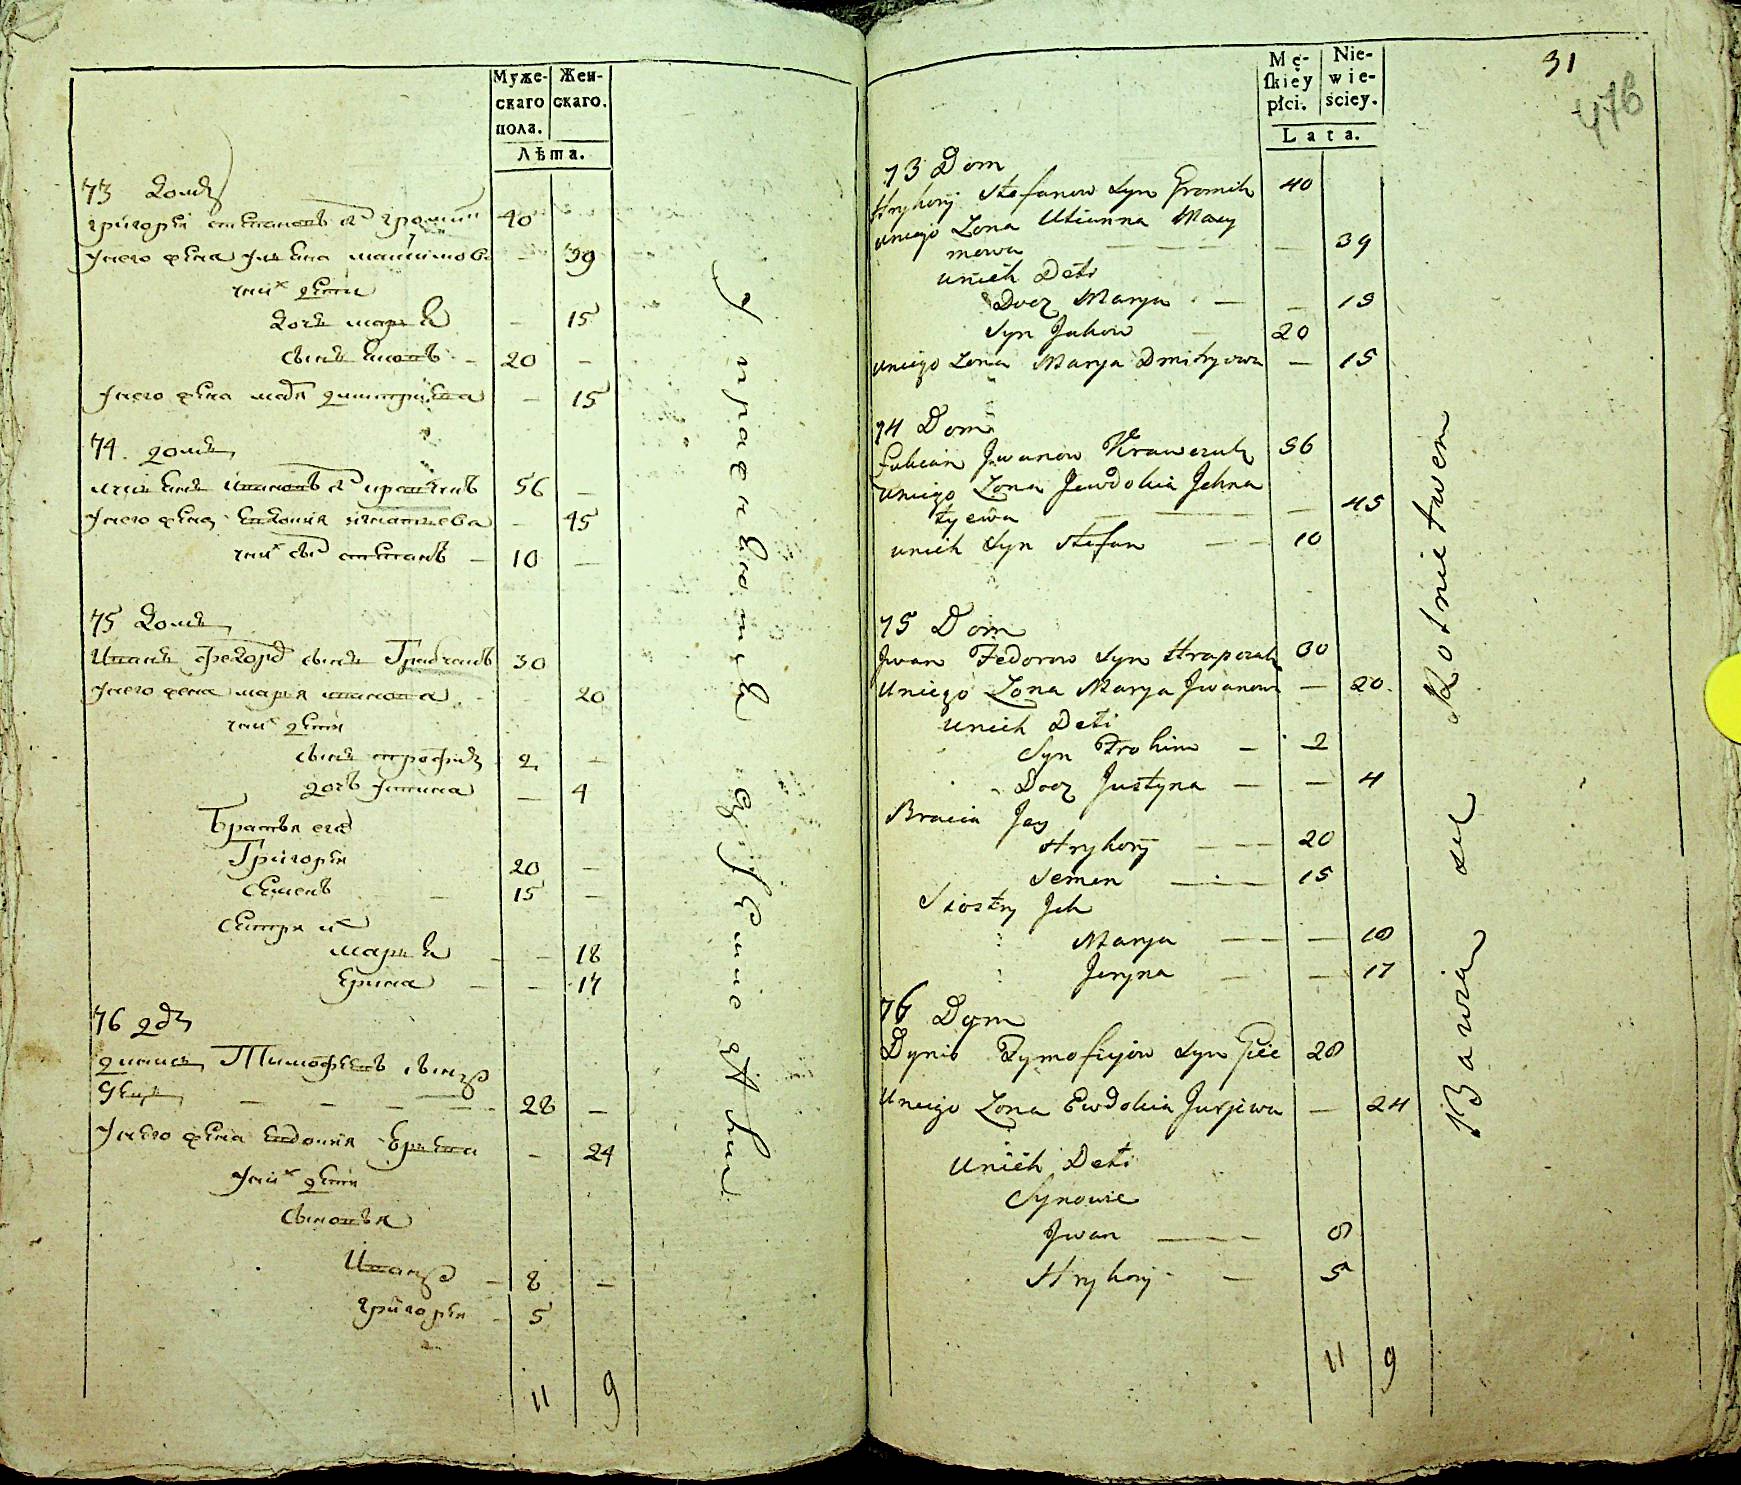 Муже- Жен-
скаго скаго.
пола.
Лѣта.
73 Домъ
Григорѣй степановъ сн громик 40
Унего жена Улиана максимова - 39
Уних дети
дочь мария - 15
сынъ Яковъ - 20 -
Унего жена мария димитриева - 15
74. домъ
Иванов 56 -
Унего жена Евдокия игнатиева - 45
Уних сн степанъ - 10 -
75 Домъ
Иванъ Федоров сынъ 30
Унего жена мария иванова - 20
Уних дети
сынъ трофимъ - 2 -
дочь Устина - 4
Братья его
Григорѣй 20 -
Семенъ - 15 -
Сестри их
мария - - 18
Ерина - - 17
76 дом
Тимофеевъ сынъ
Гецъ - - - - 28 -
Унего жена Евдокия Юриева - 24
Уних дети
сыновья
Иванъ - 8 -
григорей - 5
11 9
Упражняются
Mę- Nie-
ſkiéy wie-
płci. ściey.
Lata.
31
476
73 Dom
Hryhory Stefanow Syn Hromik 40
uniego Zona Ulianna Maxy
mowa - - - - 39
unich Deti
Docz Marya - - 15
Syn Jakow - 20
uniego Zona Marya Dmitryowa - 15
74 Dom
Iwanow Krawczuk 56
uniego Zona Jewdokia Jehna
tyewa - - - 45
unich Syn Stefan - - 10
75 Dom
Jwan Fedorow Syn Hrapczuk 30
uniego Zona Marya Jwanowa - 20.
unich Deti
Syn Trohim - - 2
Docz Justyna - - 4
Bracia Jey
Hryhory - - - 20
Semen - - - 15
Siostry Jch
Marya - - - 18
Jeryna - - 17
76 Dym
Dynis Tymofiyów Syn Giec 28
Uniego Zona Ewdokia Jurjewa - 24
Unich Deti
Synowie
Jwan - - - 8
Hryhory - - 5
11 9
Bawia sie Rolnictwem